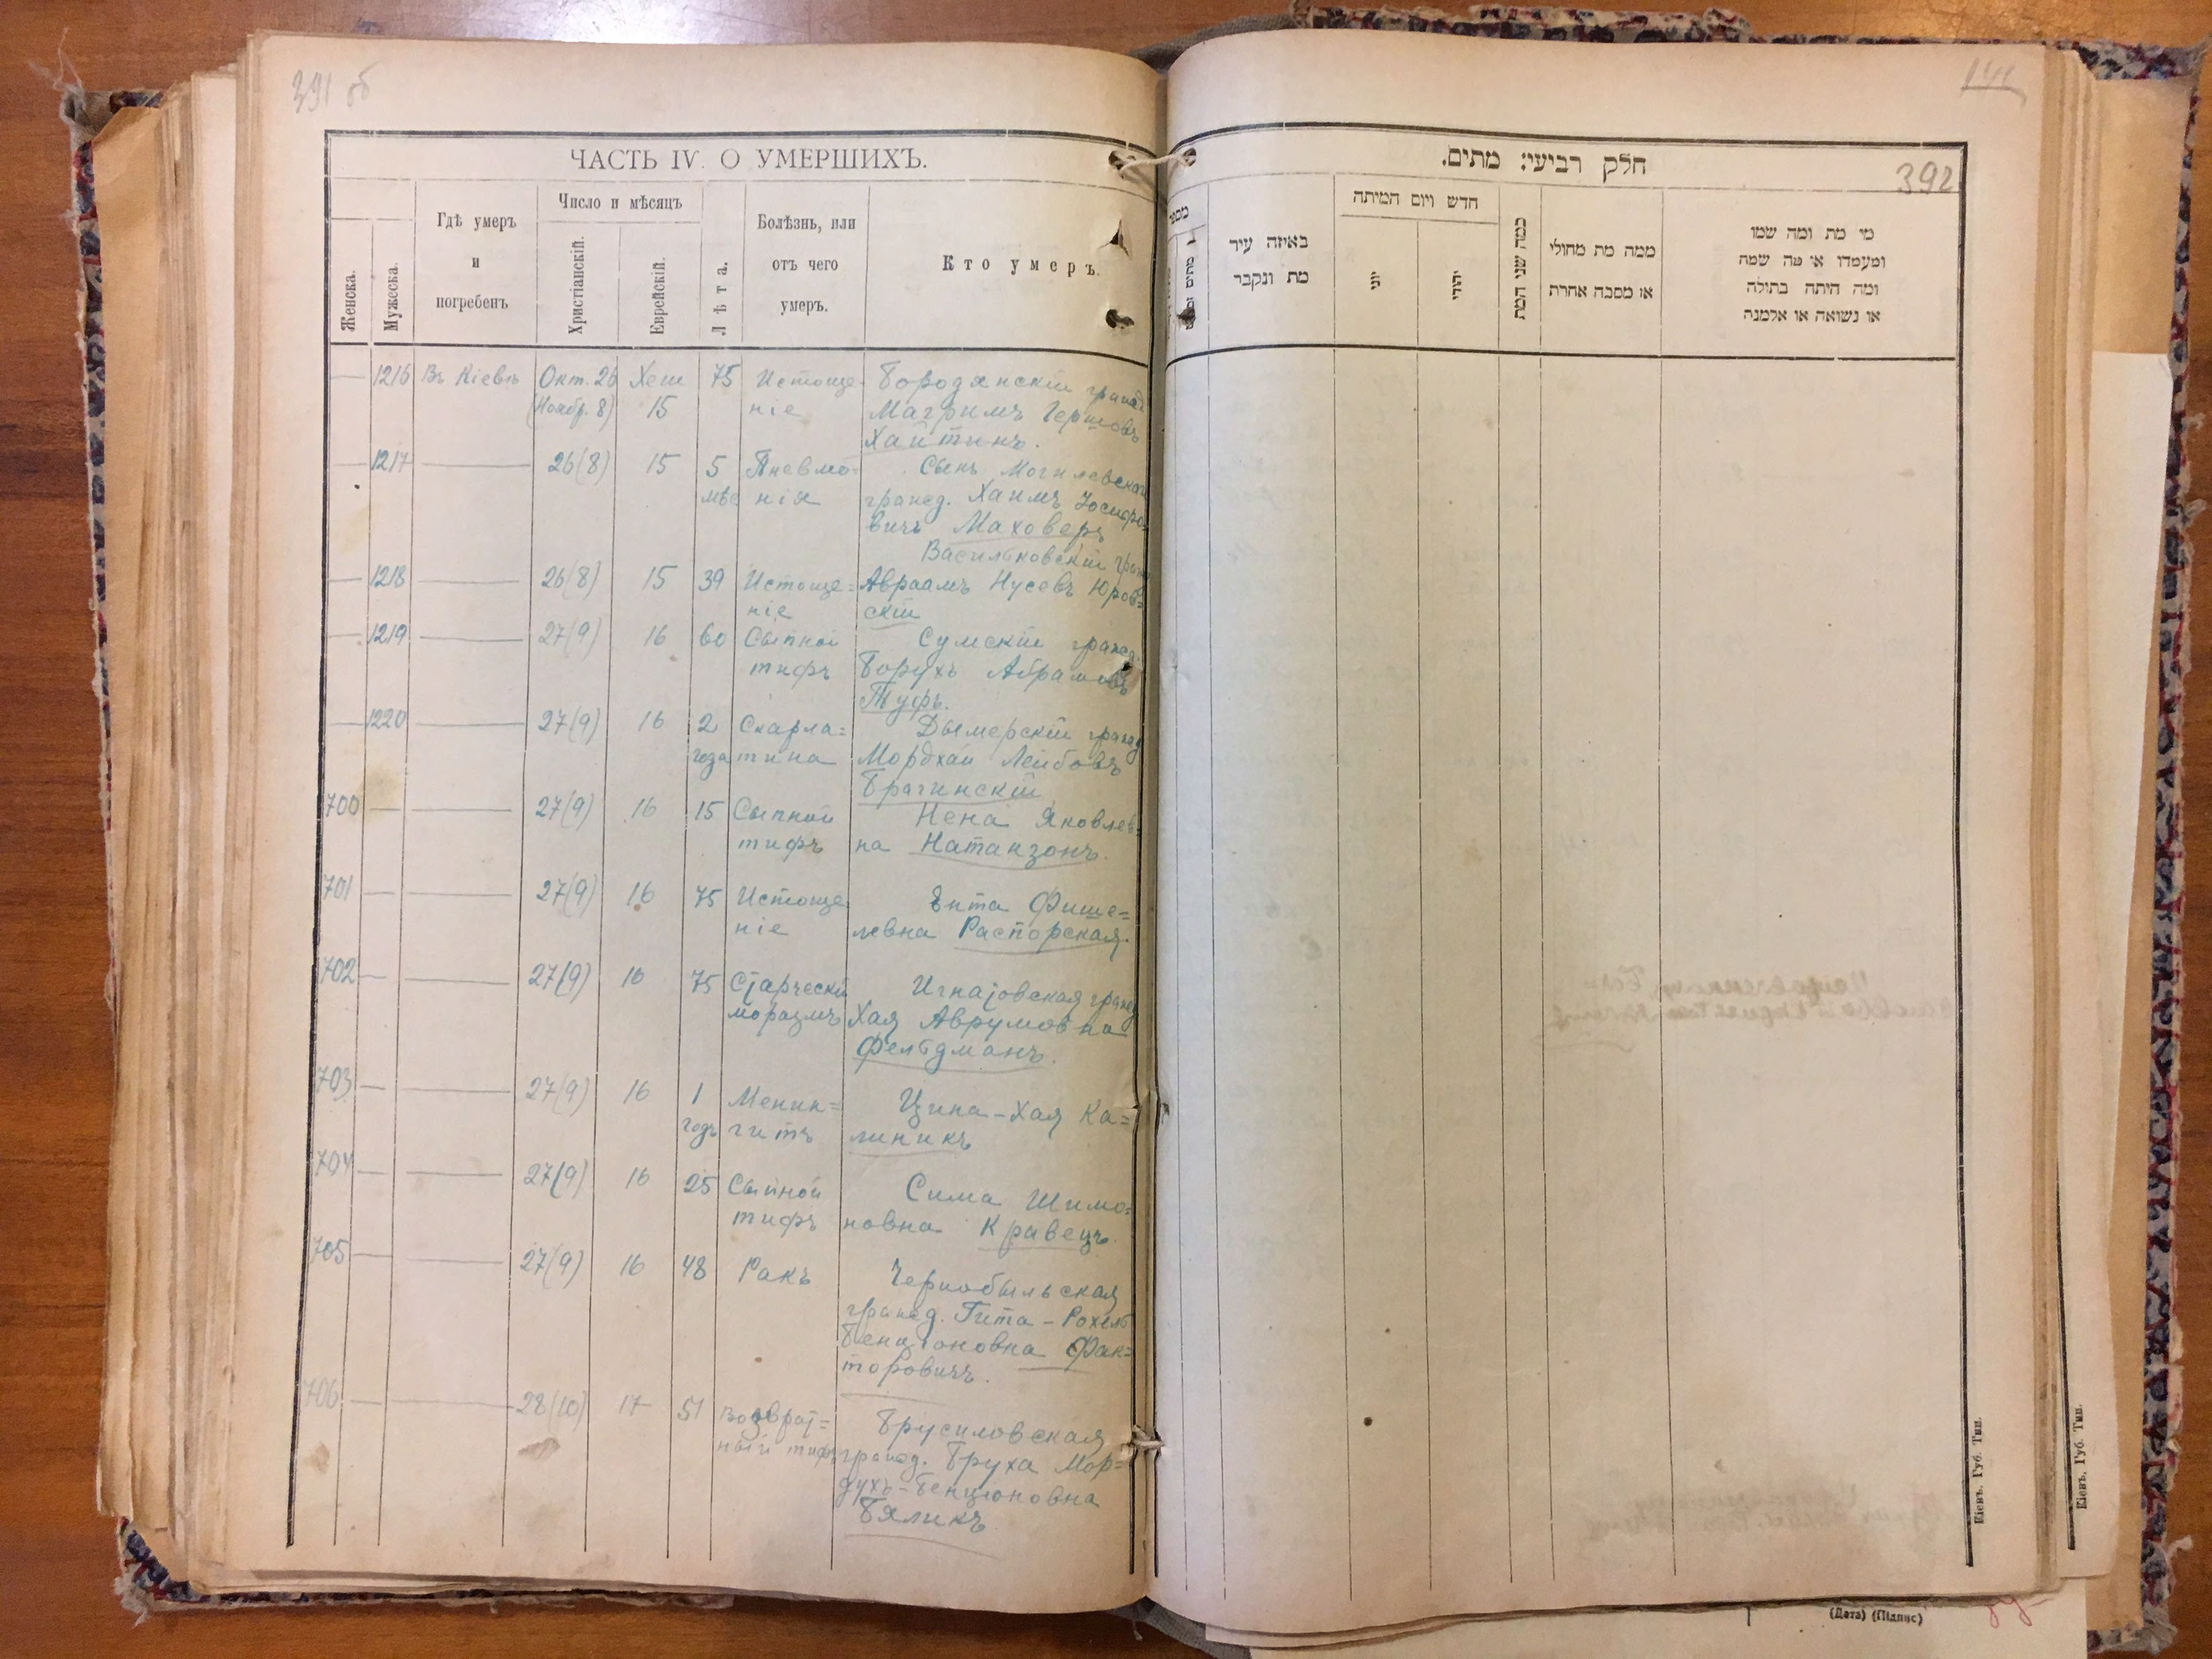 391 об
ЧАСТЬ IV. О УМЕРШИХЪ.
Женска.
Мужеска.
Гдѣ умеръ
и
погребенъ
Число и мѣсяцъ
Христіанскій.
Еврейскій.
Лѣта.
Болѣзнь, или
отъ чего
умеръ.
Кто умеръ.
— 1216 Въ Кіевѣ Окт. 26 Хеш 75 Истоще- Бородянскій гражд
(Ноябр. 8) 15 ніе Магримъ Гершовъ
Хайтинъ.
— 1217 — 26(8) 15 5 Пневмо- Сынъ Могилевскаго
мѣс нія гражд. Хаимъ Іосифо
вичъ Маховеръ
Васильковскій граж
— 1218 — 26(8) 15 39 Истоще= Авраамъ Нусевъ Юров=
ніе скій
— 1219 — 27(9) 16 60 Сыпной Сумскій гражд.
тифъ Борухъ Абрамовъ
Туфъ.
— 1220 — 27(9) 16 2 Скарла= Дымерскій гражд
года тина Мордхай Лейбовъ
Брагинскій
700 — — 27(9) 16 15 Сыпной Нена Яковлев=
тифъ на Натанзонъ.
701 — — 27(9) 16 75 Истоще Фише=
ніе левна Распорская.
702 — — 27(9) 16 75 Старческій Игнатовская гражд
моразмъ Хая Аврумовна
Фельдманъ.
703 — — 27(9) 16 1 Менин= Цина-Хая Ка=
годъ гитъ линикъ
704 — — 27(9) 16 25 Сыпной Сима Шимо=
тифъ новна Кравецъ.
705 — — 27(9) 16 48 Ракъ Чернобыльская
гражд. Гита-Рохель
Бенціоновна Фак=
торовичъ.
706 — — 28(10) 17 51 Возврат= Брусиловская
ный тифъ гражд. Бруха Мор=
духъ-Бенціоновна
Бяликъ
חלק רביעי: מתים.
392
באיזה עיר
מת ונקבר
חדש ויום המיתה
יוני
יהודי
כמה שני המת
ממה מת מחולי
או מסבה אחרת
מי מת ומה שמו
ומעמדו או מה שמה
ומה היתה בתולה
או נשואה או אלמנה
Кіевъ. Губ. Тип.
Кіевъ. Губ. Тип.
(Дата) (Підпис)